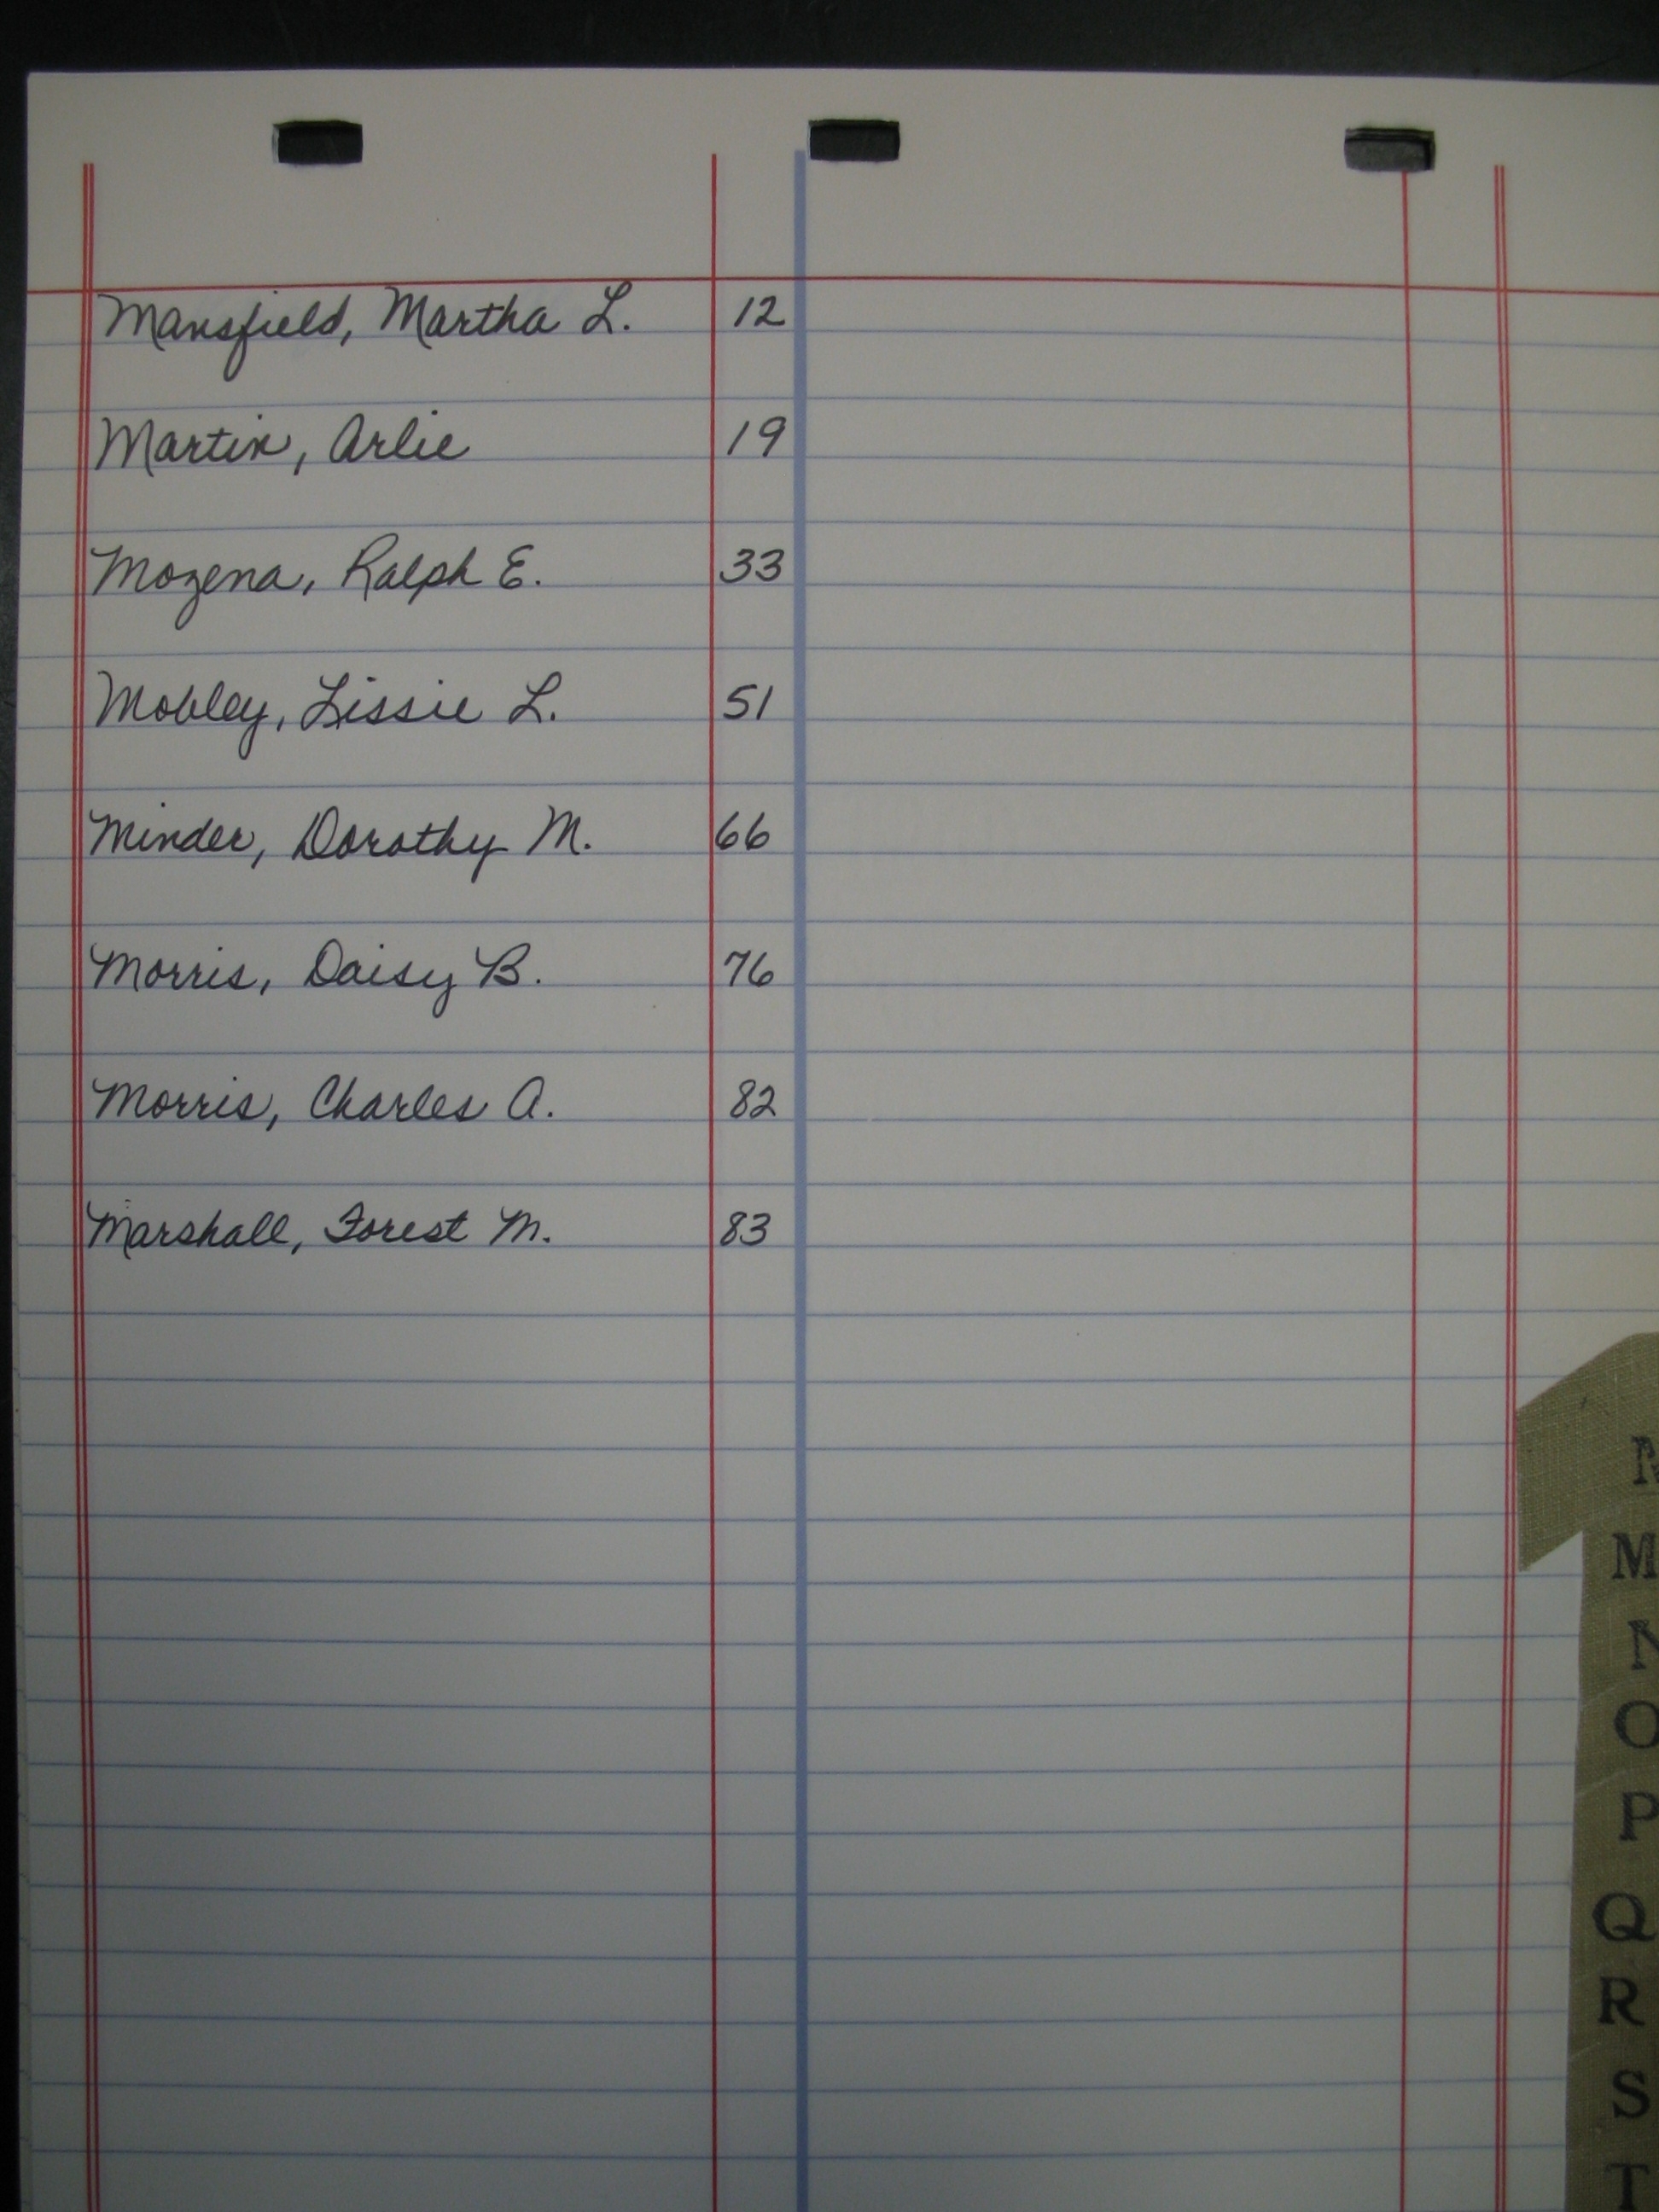 Mansfield, Martha L. 12
Martin, Arlie 19
Mozena, Ralph E. 33
Mobley, Lissie L. 51
Minder, Dorothy M. 66
Morris, Daisy B. 76
Morris, Charles A. 82
Marshall, Forest M. 83
M
N
O
P
Q
R
S
T